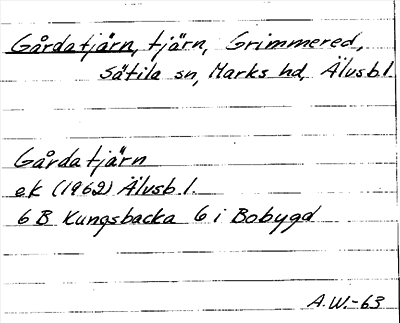 Gårdatjärn, tjärn, Grimmered,
Sätila sn, Marks hd, Älvsb.l.
Gårdatjärn
ek (1962) Älvsb.l.
6 B Kungsbacka 6 i Bobygd
A.W.-63